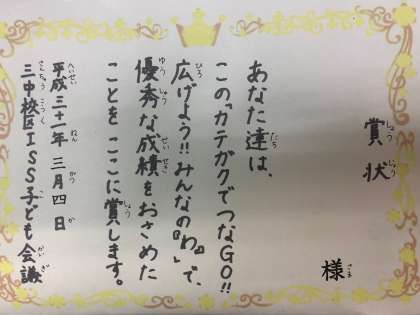 賞状
様
あなた達は、
この「カテガクでつなGO!!
広げよう!!みんなの『わ』」で、
優秀な成績をおさめた
ことをここに賞します。
平成三十一年 三月四日
三中校区ISS子ども会議